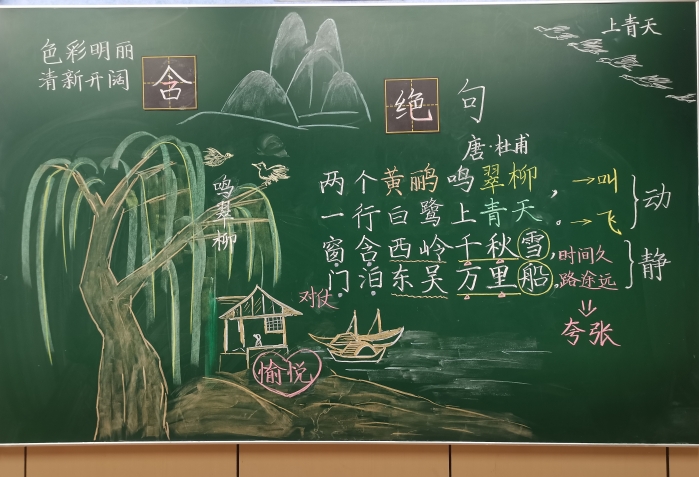 色彩明丽
清新开阔
含
绝句
唐·杜甫
上青天
鸣翠柳
两个黄鹂鸣翠柳，→叫
一行白鹭上青天。→飞
动
窗含西岭千秋雪，时间久
门泊东吴万里船。路途远
静
对仗
夸张
愉悦